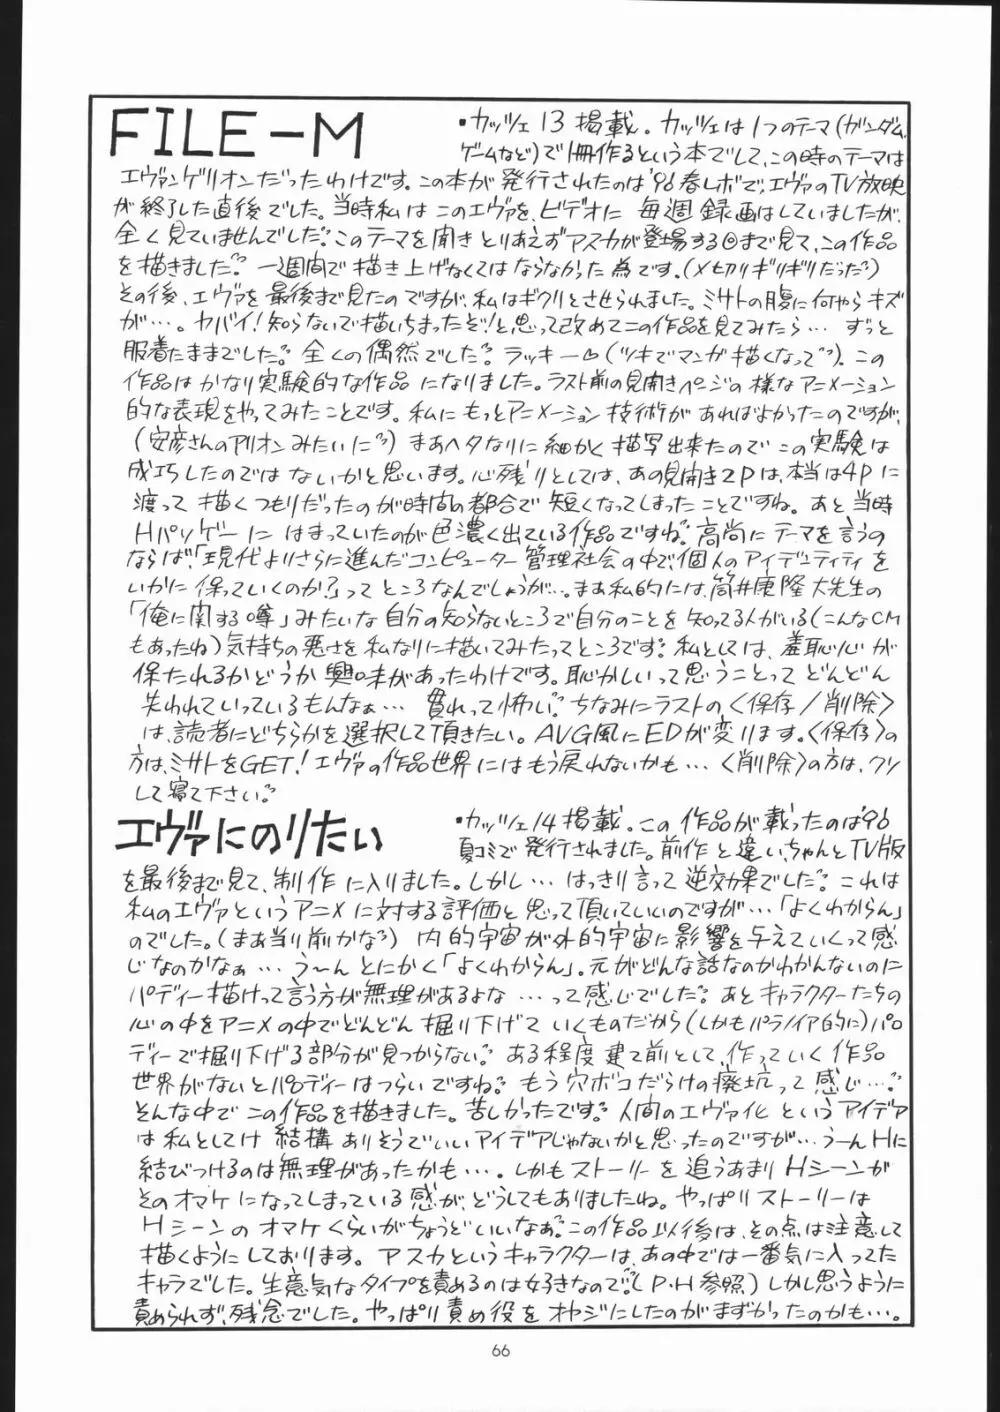 FILE-M
・カッツェ13掲載。カッツェは1つのテーマ(ガンダム、
ゲームなど)で1冊作るという本でして、この時のテーマは
エヴァンゲリオンだったわけです。この本が発行されたのは'96春レボで、エヴァのTV放映
が終了した直後でした。当時私はこのエヴァを、ビデオに毎週録画はしていましたが、
全く見ていませんでした。このテーマを聞きとりあえずアスカが登場する回まで見て、この作品
を描きました。一週間で描き上げなくてはならなかった為です。(〆切りギリギリだった)
その後、エヴァを最後まで見たのですが、私はギクリとさせられました。ミサトの腹に何やらキズ
が…。ヤバイ!知らないで描いちまったぞ!と思って改めてこの作品を見てみたら…ずっと
服着たままでした。全くの偶然でした。ラッキー♡(ツキでマンガ描くなって)。この
作品はかなり実験的な作品になりました。ラスト前の見開きページの様なアニメーション
的な表現をやってみたことです。私にもっとアニメーション技術があればよかったのですが、
(安彦さんのアリオンみたいに)まあヘタなりに細かく描写出来たのでこの実験は
成功したのではないかと思います。心残りとしては、あの見開き2Pは、本当は4Pに
渡って描くつもりだったのが時間の都合で短くなってしまったことですね。あと当時
Hパソゲーにはまっていたのが色濃く出ている作品ですね。高尚にテーマを言うの
ならば、「現代よりさらに進んだコンピューター管理社会の中で、個人のアイデンティティを
いかに保っていくのか?」ってところなんでしょうが…。まあ私的には、筒井康隆大先生の
「俺に関する噂」みたいな自分の知らないところで自分のことを知ってる人がいる(こんなCM
もあったね)気持ちの悪さを私なりに描いてみたってところです。私としては、羞恥心が
保たれるかどうか興味があったわけです。恥かしいって思うことってどんどん
失われていっているもんなぁ…慣れって怖い。ちなみにラストの〈保存/削除〉
は、読者にどちらかを選択して頂きたい。AVG風にEDが変ります。〈保存〉の
方は、ミサトをGET!エヴァの作品世界にはもう戻れないかも…〈削除〉の方は、クソ
して寝て下さい。
エヴァにのりたい
・カッツェ14掲載。この作品が載ったのは'96
夏コミで発行されました。前作と違い、ちゃんとTV版
を最後まで見て、制作に入りました。しかし…はっきり言って逆効果でした。これは
私のエヴァというアニメに対する評価と思って頂いていいのですが…「よくわからん」
のでした。(まあ当り前かな)内的宇宙が外的宇宙に影響を与えていくって感
じなのかなぁ…う〜んとにかく「よくわからん」。元がどんな話なのかわかんないのに
パロディー描けって言う方が無理があるよな…って感じでした。あとキャラクターたちの
心の中をアニメの中でどんどん掘り下げていくものだから(しかもパラノイア的に)パロ
ディーで掘り下げる部分が見つからない。ある程度建て前として、作っていく作品
世界がないとパロディーはつらいですね。もう穴ボコだらけの廃坑って感じ…。
そんな中でこの作品を描きました。苦しかったです。人間のエヴァ化というアイデア
は私としては結構ありそうでいいアイデアじゃないかと思ったのですが…うーんHに
結びつけるのは無理があったかも…。しかもストーリーを追うあまりHシーンが
そのオマケになってしまっている感が、どうしてもありましたね。やっぱりストーリーは
Hシーンのオマケくらいがちょうどいいなあ。この作品以後は、その点は注意して
描くようにしております。アスカというキャラクターは、あの中では一番気に入ってた
キャラでした。生意気なタイプを責めるのは好きなので。(P・H参照)しかし思うように
責められず、残念でした。やっぱり責め役をオヤジにしたのがまずかったのかも…。
66